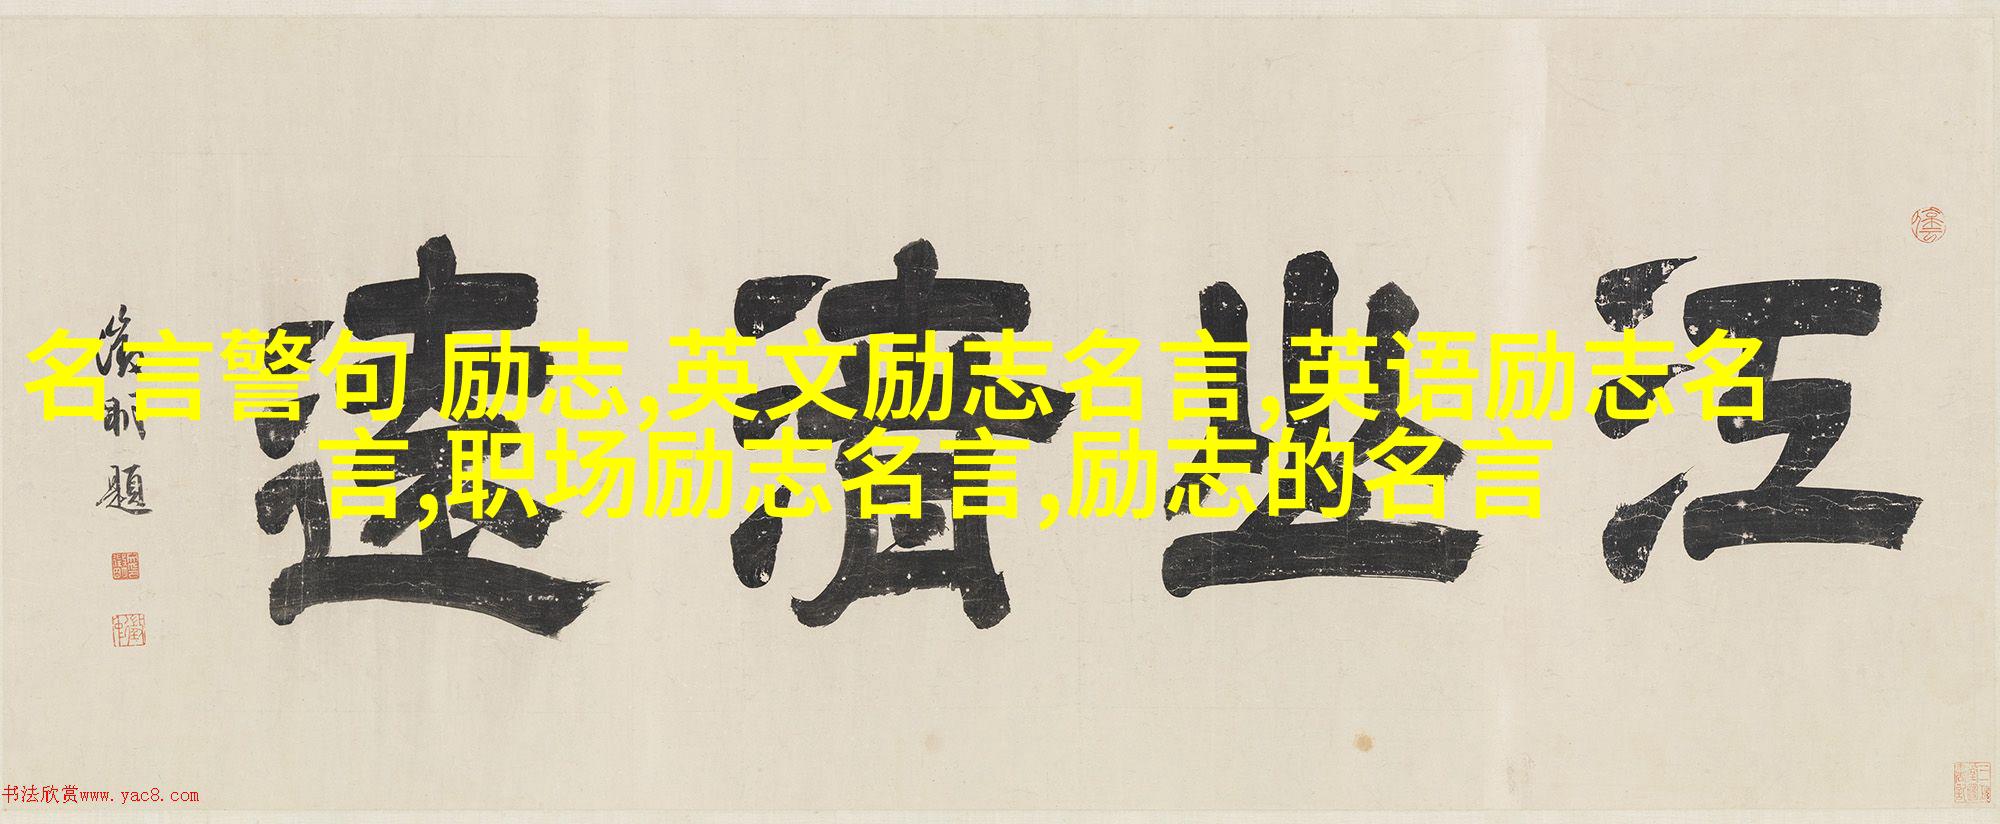 名言警句 励志,英文励志名言,英语励志名
言,职场励志名言,励志的名言
江山清遠
徵明
題
书法欣赏www.yac8.com